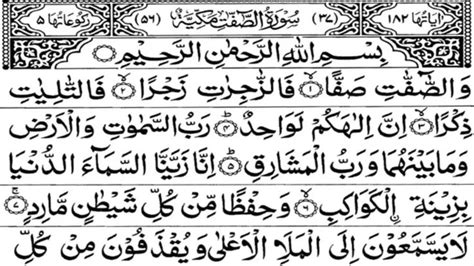 اٰيَاتُهَا ١٨٢ (٣٧) سُوْرَةُ الصّٰٓفّٰتِ مَكِّيَّةٌ (٥٦) رُكُوْعَاتُهَا ٥
بِسْمِ اللّٰهِ الرَّحْمٰنِ الرَّحِيْمِ
وَالصّٰٓفّٰتِ صَفًّا ۙ۝١ فَالزّٰجِرٰتِ زَجْرًا ۙ۝٢ فَالتّٰلِيٰتِ
ذِكْرًا ۙ۝٣ اِنَّ اِلٰهَكُمْ لَوَاحِدٌ ؕ۝٤ رَبُّ السَّمٰوٰتِ وَالْاَرْضِ
وَمَا بَيْنَهُمَا وَرَبُّ الْمَشَارِقِ ؕ۝٥ اِنَّا زَيَّنَّا السَّمَآءَ الدُّنْيَا
بِزِيْنَةِ ۨالْكَوَاكِبِ ۙ۝٦ وَحِفْظًا مِّنْ كُلِّ شَيْطٰنٍ مَّارِدٍ ۚ۝٧
لَا يَسَّمَّعُوْنَ اِلَى الْمَلَاِ الْاَعْلٰى وَيُقْذَفُوْنَ مِنْ كُلِّ